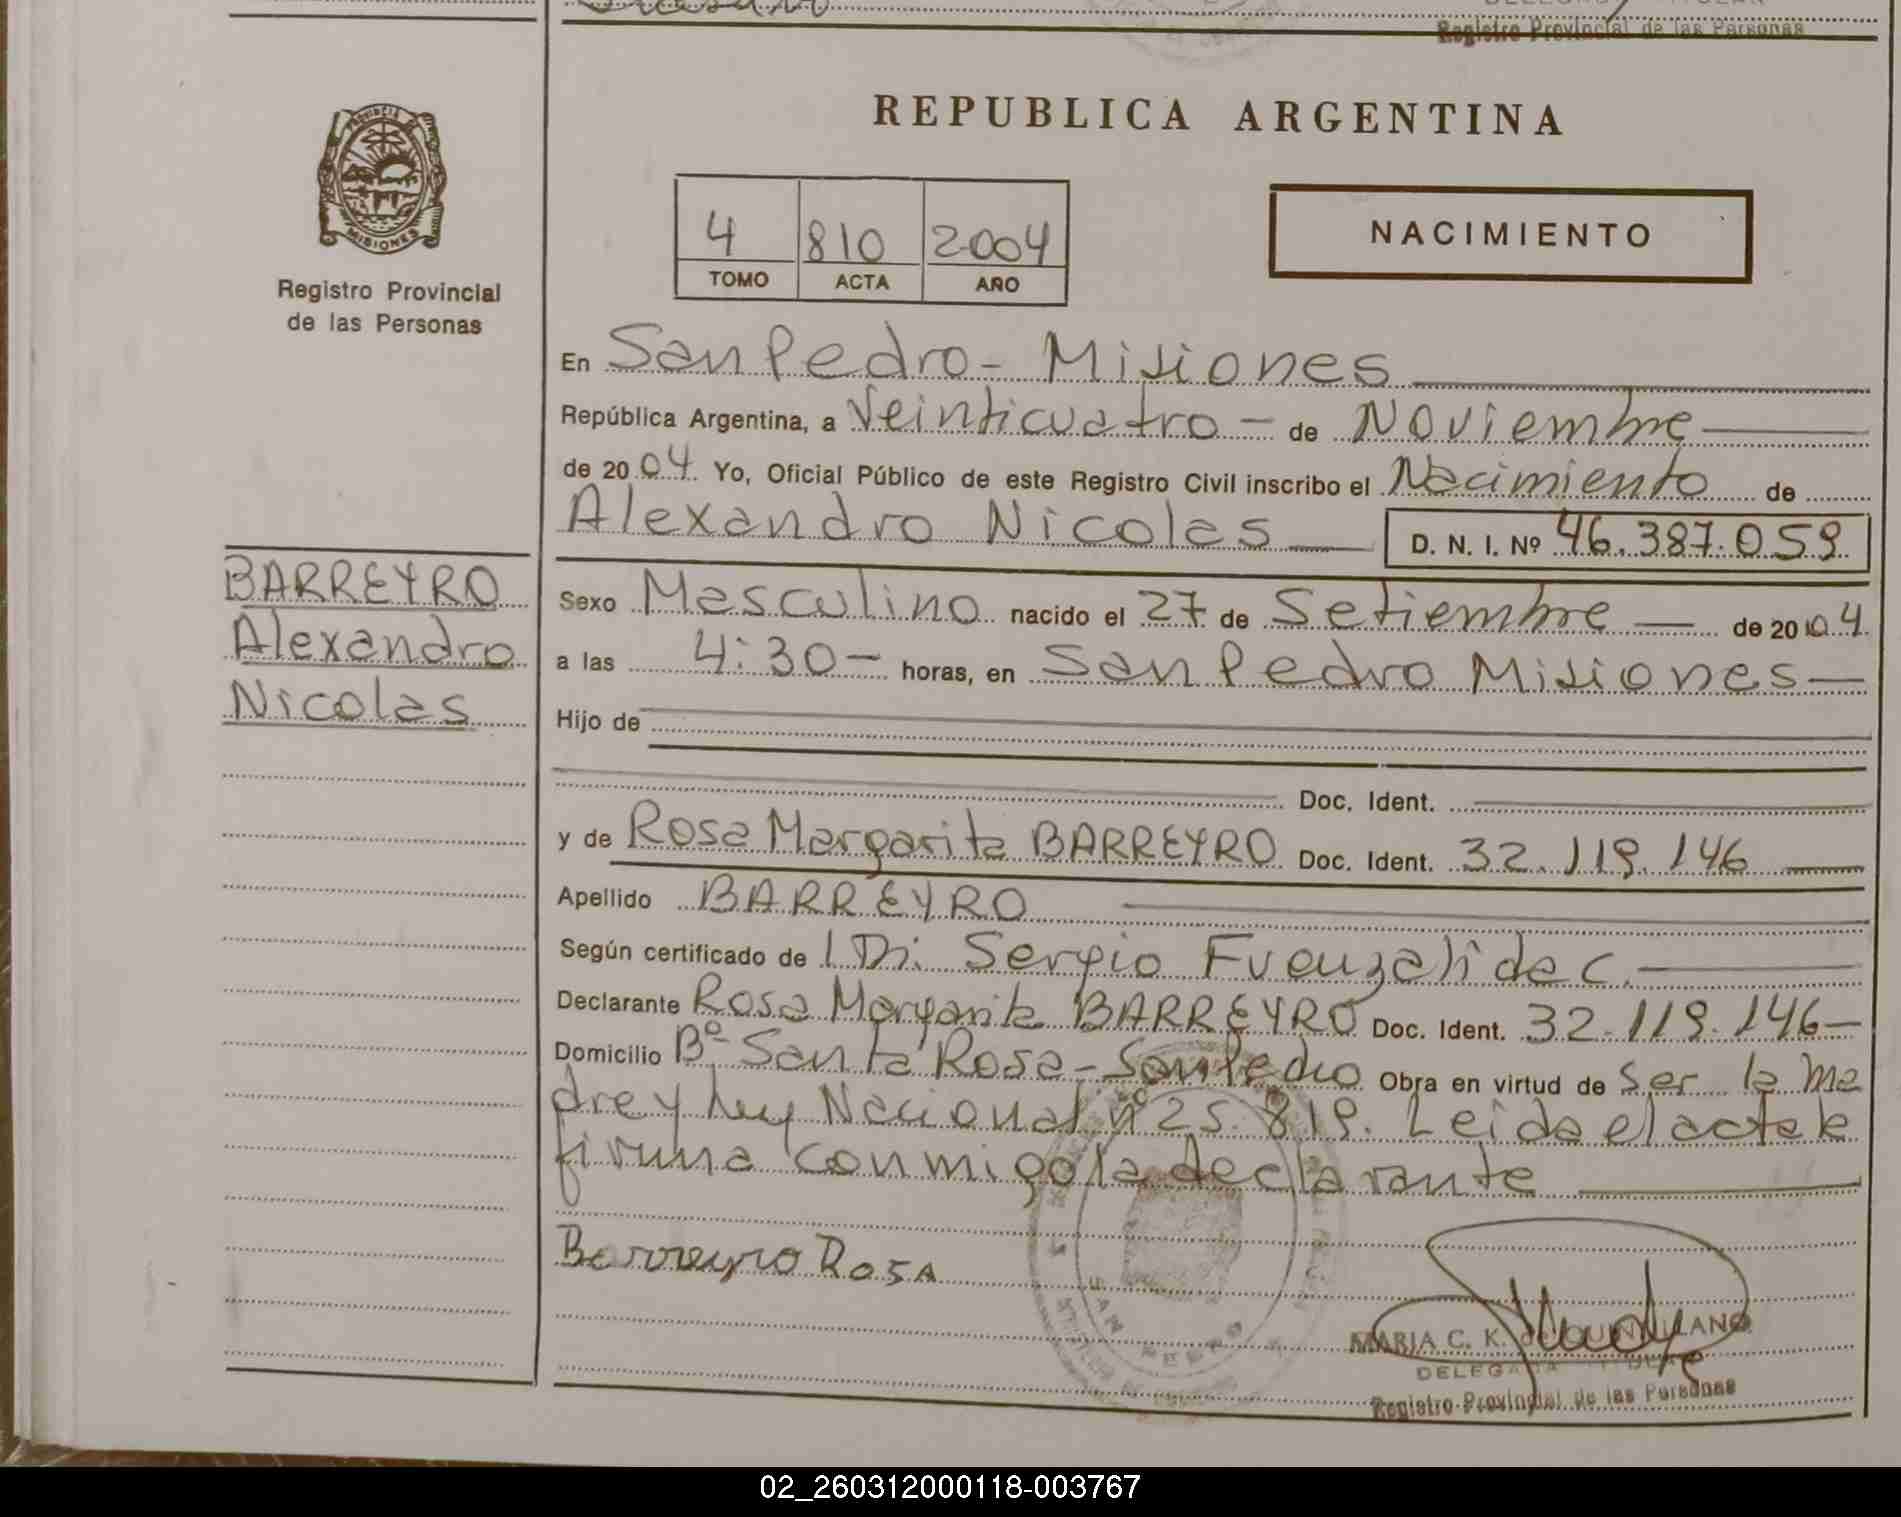 Registro Provincial de las Personas
PROVINCIA DE
MISIONES
Registro Provincial
de las Personas
REPUBLICA ARGENTINA
4 810 2004
TOMO ACTA AÑO
NACIMIENTO
En San Pedro - Misiones
República Argentina, a Veinticuatro - de Noviembre
de 2004. Yo, Oficial Público de este Registro Civil inscribo el Nacimiento de
Alexandro Nicolas D. N. I. Nº 46.387.059
BARREYRO
Alexandro
Nicolas
Sexo Masculino nacido el 27 de Setiembre de 2004.
a las 4:30 - horas, en San Pedro Misiones
Hijo de
Doc. Ident.
y de Rosa Margarita BARREYRO Doc. Ident. 32.119.146
Apellido BARREYRO
Según certificado de Dr. Sergio Fuenzalida C.
Declarante Rosa Margarita BARREYRO Doc. Ident. 32.119.146
Domicilio Bº Santa Rosa - San Pedro Obra en virtud de Ser la ma
dre y Ley Nacional nº 25.819. Leida el acta la
firma conmigo la declarante
Barreyro ROSA
SAN PEDRO
MARIA C. K. de QUINTILLANO
DELEGADA TITULAR
Registro Provincial de las Personas
02_260312000118-003767